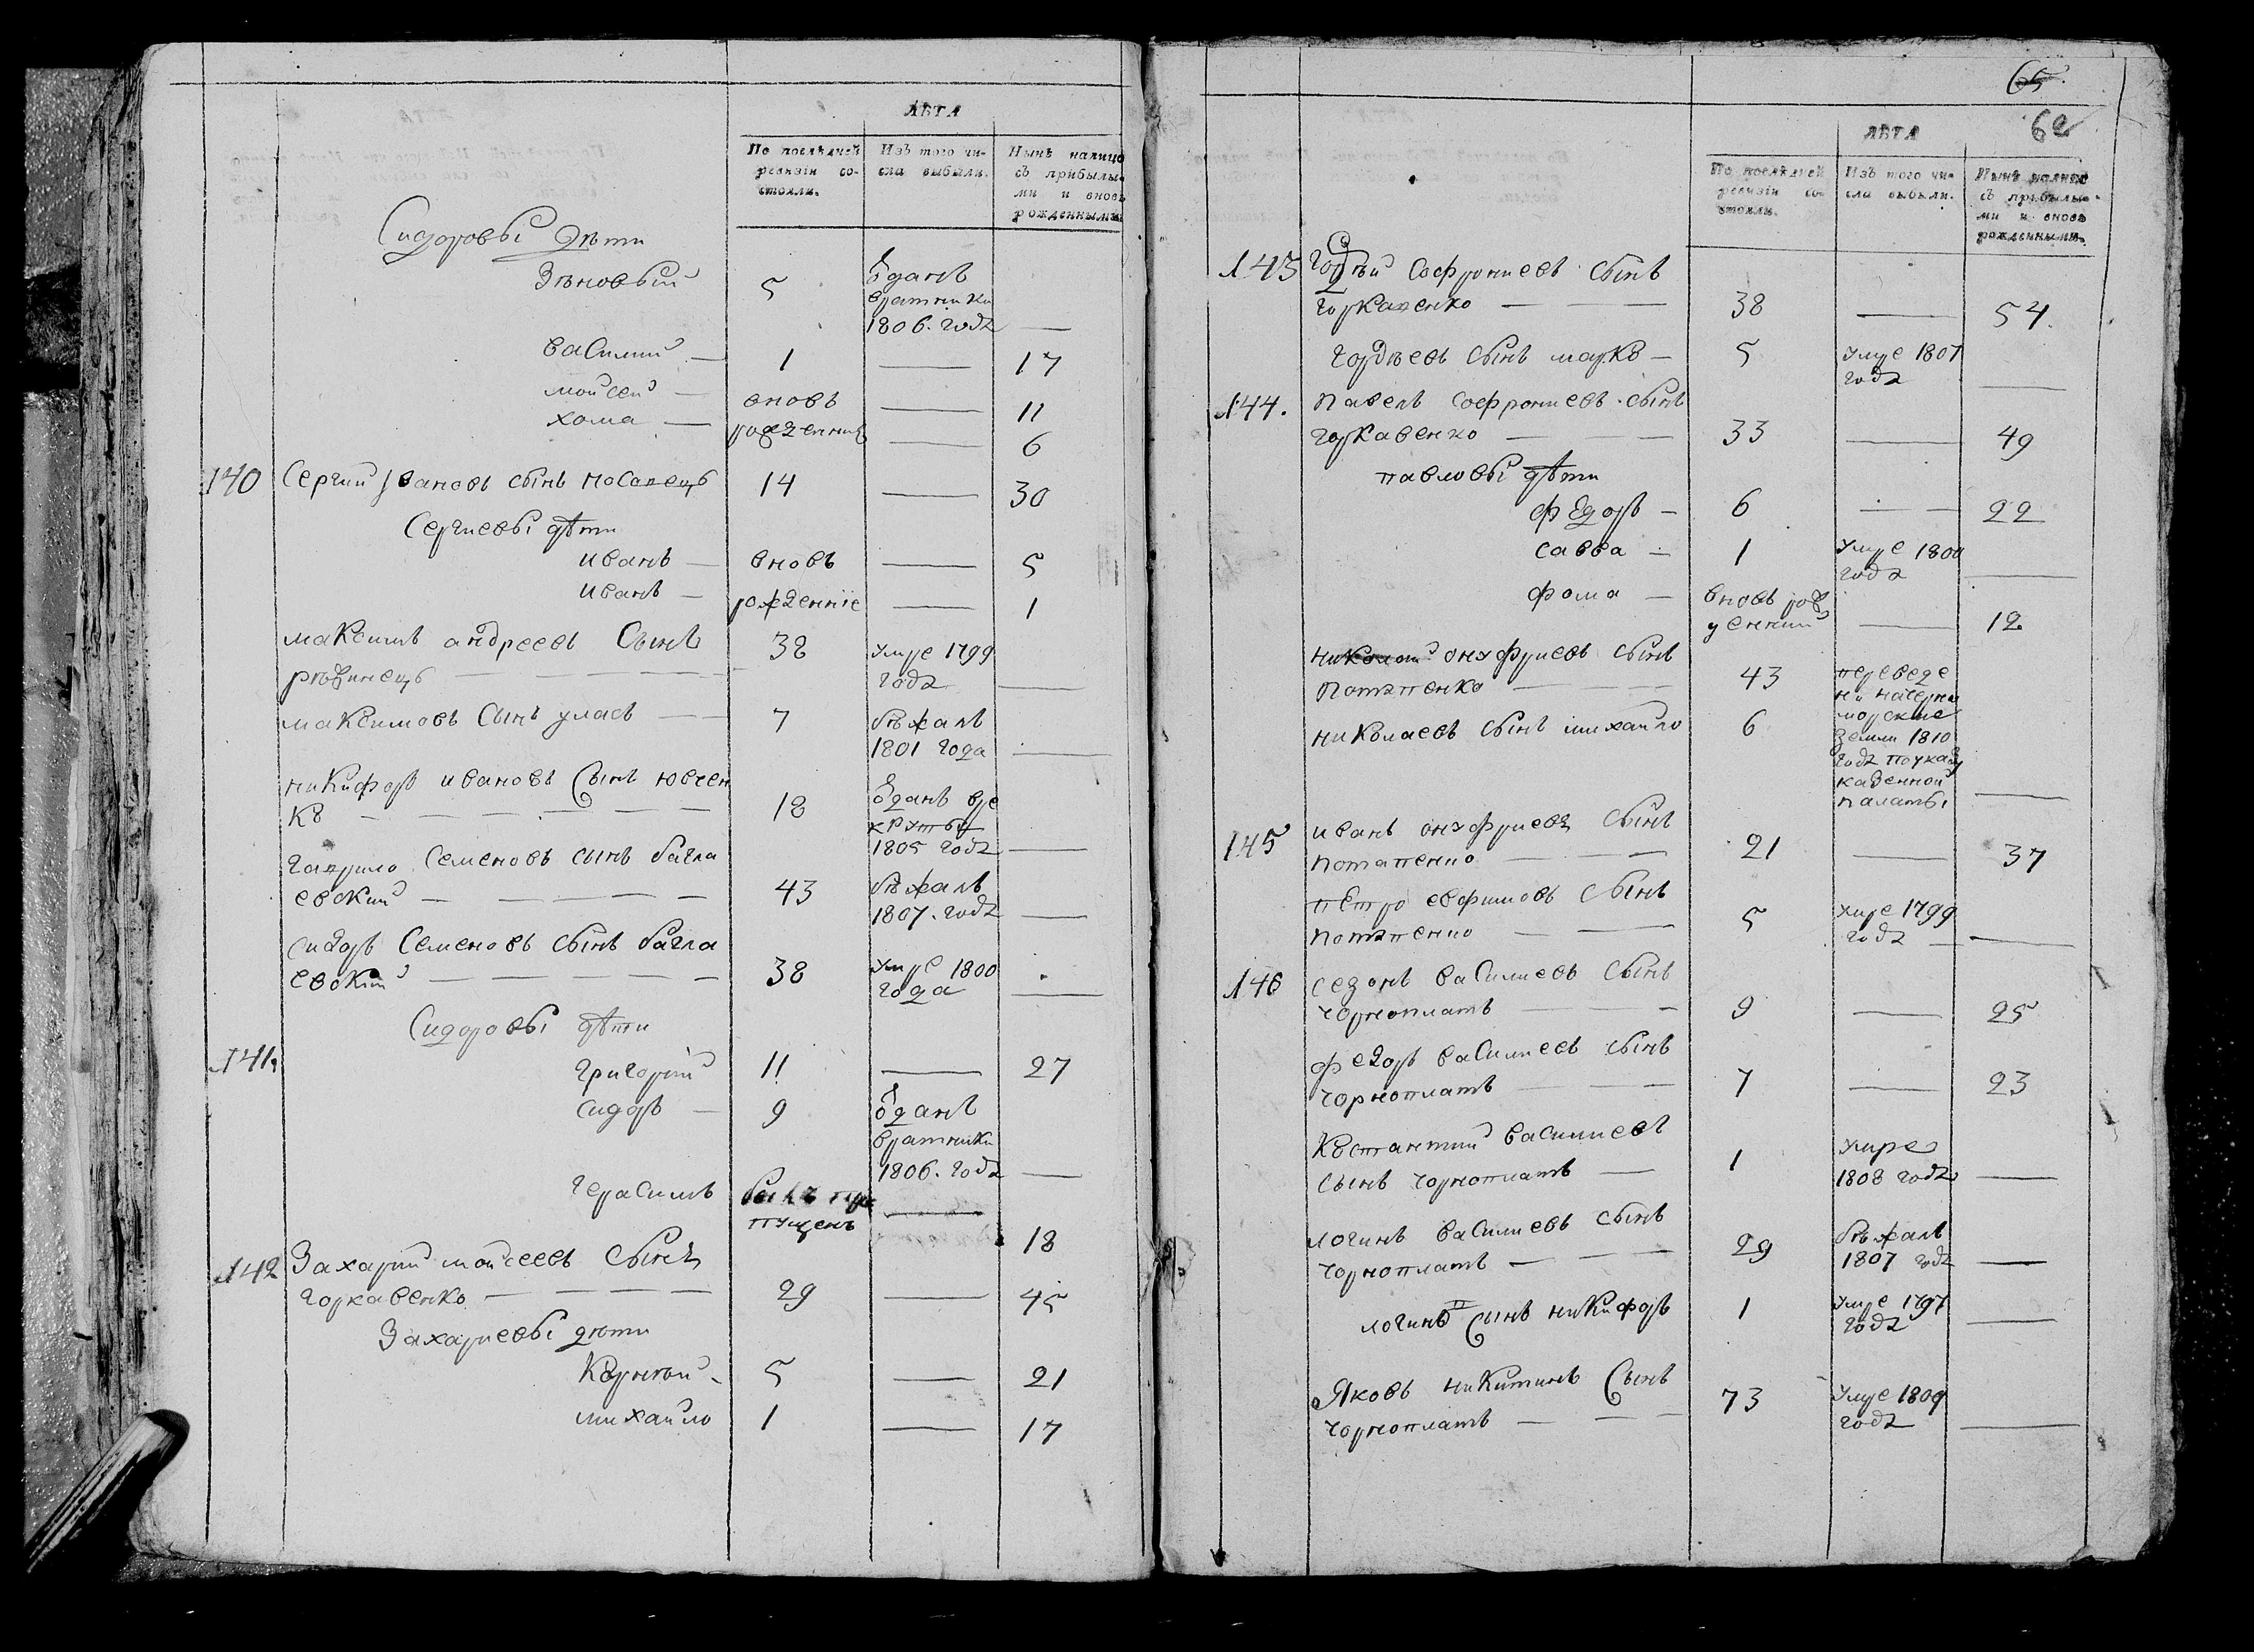 ЛѢТА
По послѣдней ревизіи со-стояли.
Изъ того чи-сла выбыли.
Нынѣ налицо съ прибылы-ми и вновь рожденными.
Сидоровы дѣти
Зѣновый 5 одань
вратники
1806. года —
василий — 1 — 17
мойсей — вновь — 11
хома — рожденнии — 6
140 Сергий Ивановъ сынъ носопецъ 14 — 30
Сергиевы дѣти
иванъ — вновь — 5
иванъ — рожденніе — 1
максимъ андреевъ Сынъ 38 умре 1799
года —
максимовъ Сынъ уласъ — 7 бѣжалъ
1801 года —
никифоръ ивановъ Сынъ ювчен
ко — 18 одань вре
круты
1805 года —
гаврило Семеновъ сынъ багла
евский — 43 бѣжалъ
1807. года —
сидоръ Семеновъ сынъ багла
евский — 38 умре 1800
года —
Сидоровы дѣти
141. григорий 11 — 27
сидоръ — 9 одань
вратники
1806. года —
герасимъ былъ про —
пущенъ 18
142 Захарий мойсеевъ Сынъ
горкавенко — 29 — 45
Захариевы дѣти
Корнѣй — 5 — 21
михайло 1 — 17
65
62
ЛѢТА
По послѣдней ревизіи со-стояли.
Изъ того чи-сла выбыли.
Нынѣ налицо съ прибылы-ми и вновь рожденными.
143 Гордѣй Софрониевъ Сынъ
горкавенко — 38 — 54.
гордѣевъ Сынъ марко — 5 умре 1807
года —
144. павелъ Софрониевъ сынъ
горкавенко — 33 — 49
павловы дѣти
федоръ — 6 — 22
савва — 1 умре 1800
года —
фома — вновь рож
денний — 12
николай онуфриевъ Сынъ
потапенко — 43 переведе
ни начерно
николаевъ Сынъ михайло 6 морские
земли 1810
года поуказу
казенной
палаты —
145 иванъ онуфриевъ Сынъ
потапенко — 21 — 37
петро евфимовъ Сынъ
потапенко — 5 умре 1799
года —
146 созонъ василиевъ Сынъ
чорноплатъ — 9 — 25
федоръ василиевъ сынъ
чорноплатъ — 7 — 23
Костантий василиевъ
сынъ чорноплатъ — 1 умре
1808 года —
логинъ василиевъ сынъ
чорноплатъ — 29 бѣжалъ
1807 года —
логинъ Сынъ никифоръ 1 умре 1797
года —
Яковъ никитинъ Сынъ
чорноплатъ — 73 умре 1809
года —